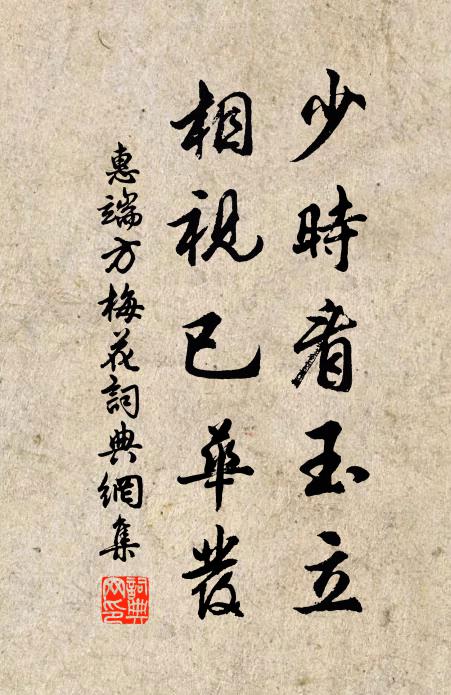 少時看玉立
相視已華發
惠端方梅花詞典網集
詞典网印